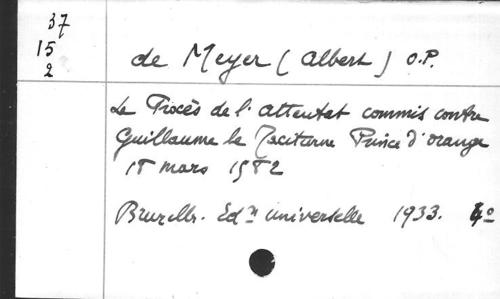 37
15
2
de Meyer (Albert) O.P.
Le Procès de l'attentat commis contre
Guillaume le Taciturne Prince d'Orange
18 mars 1582
Bruxelles. Edns universelle 1933. 4o